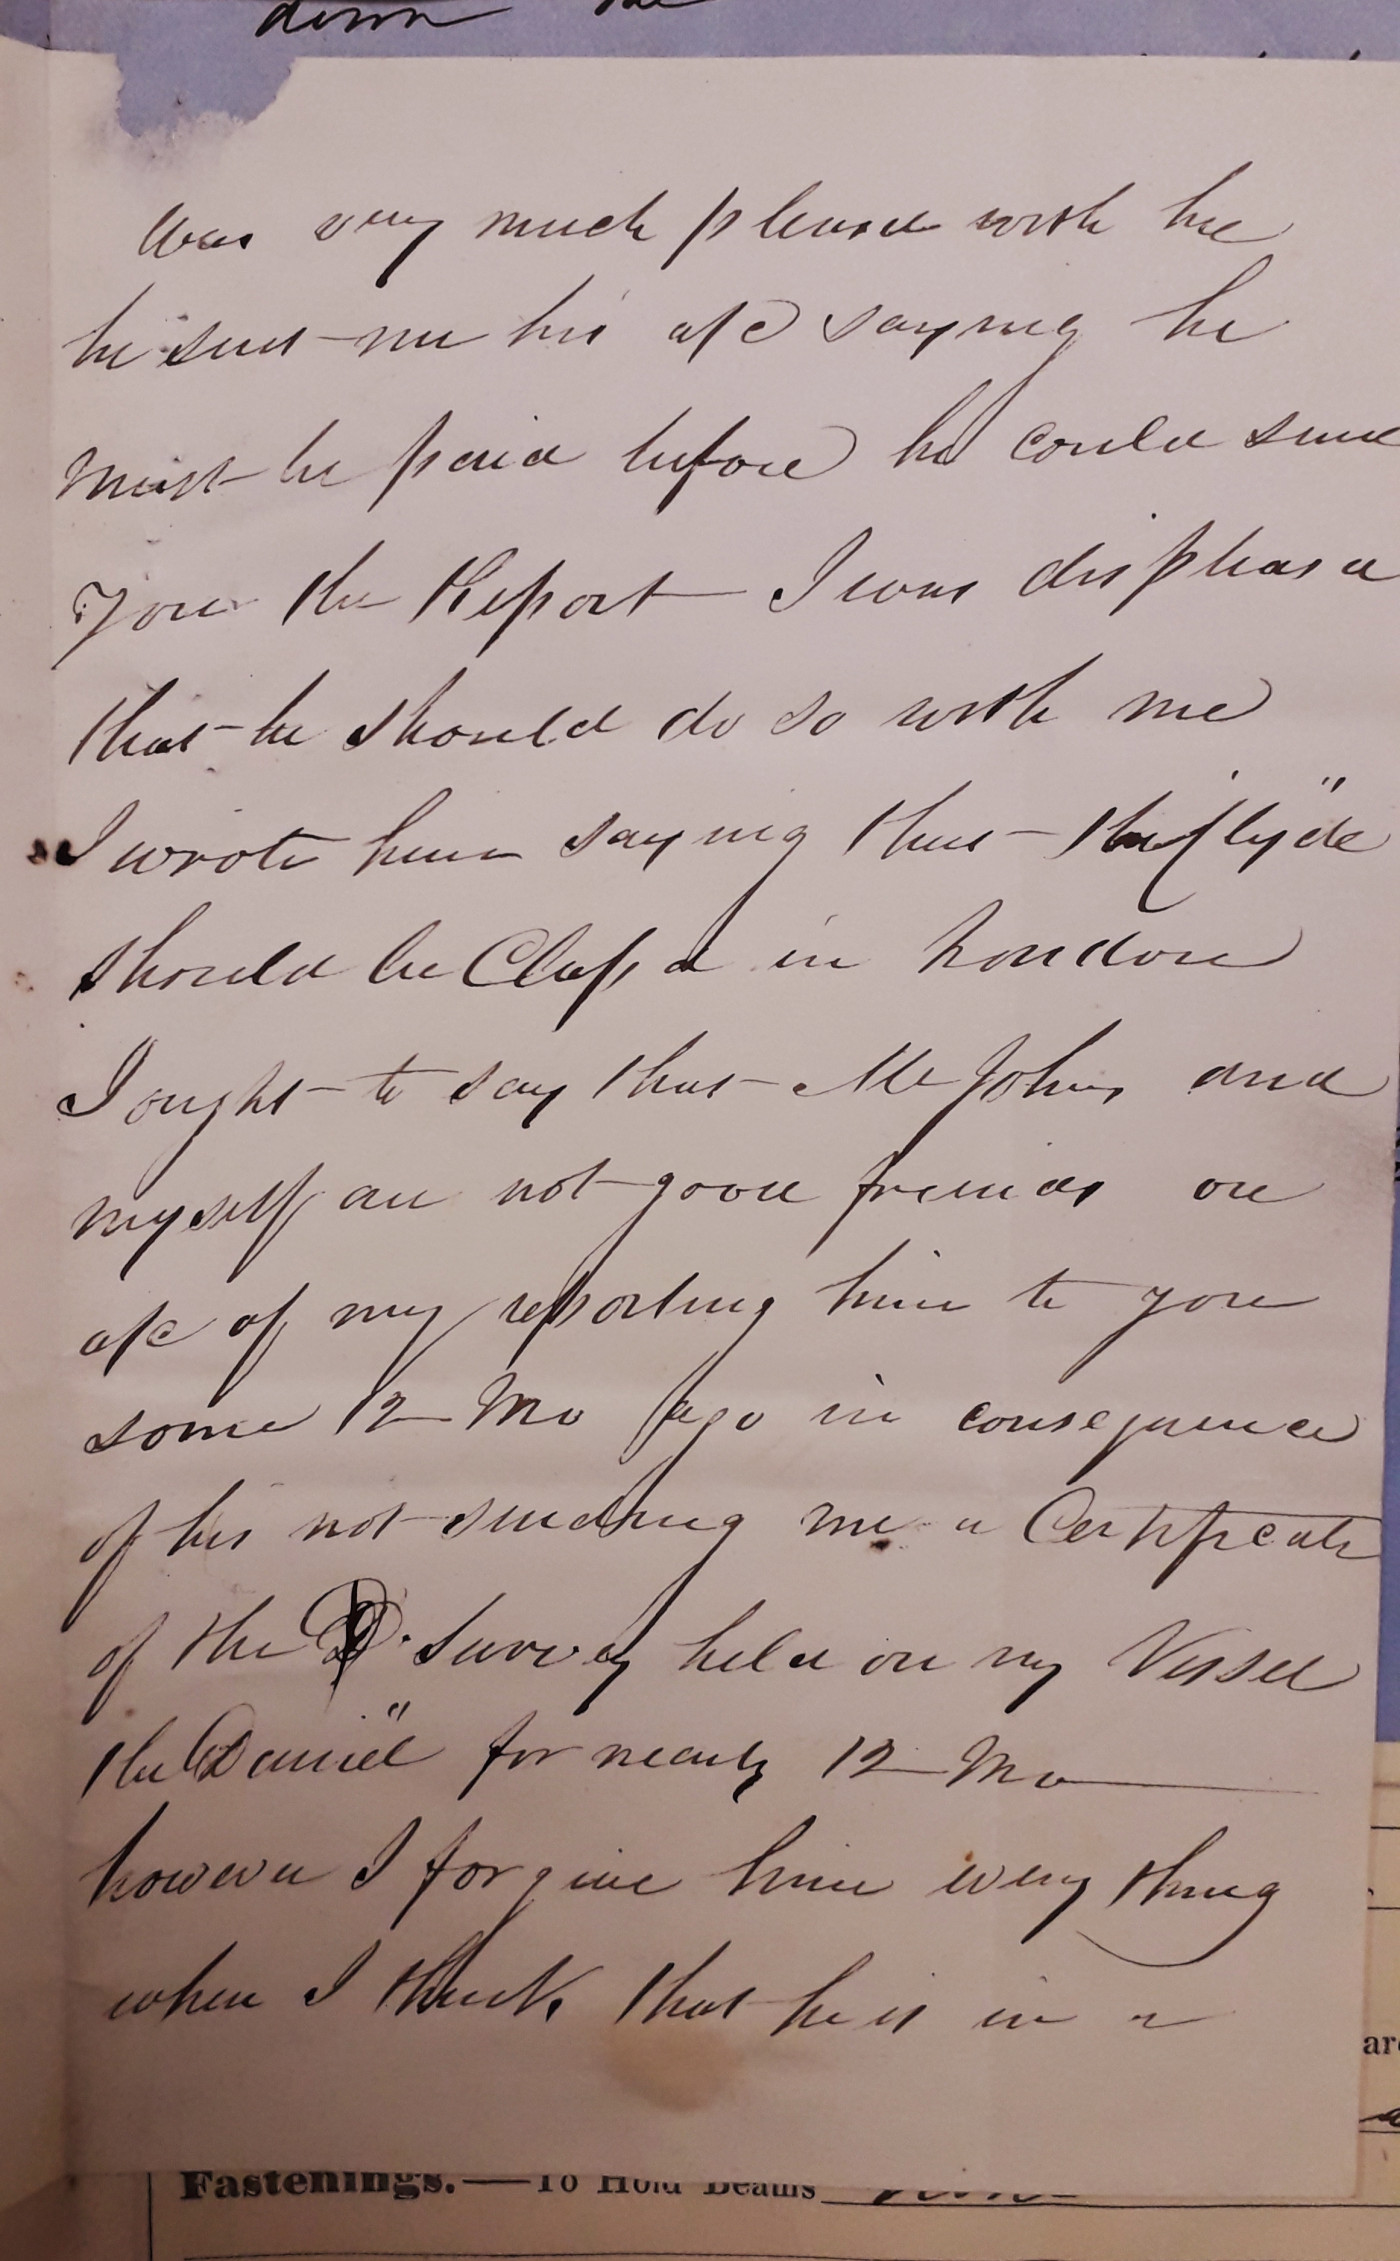 down the
was very much pleased with her
he sent me his a/c saying he
must be paid before he could send
you the Report I was displeased
that he should do so with me
I wrote him saying that the "Clyde"
should be Class'd in London
I ought to say that Mr Johns and
myself are not good friends on
a/c of my reporting him to you
some 12 Mo ago in consequence
of his not sending me a Certificate
of the Survey held on my Vessel
the "Daniel" for nearly 12 Mo
however I forgive him every thing
when I think that he is in a
Fastenings.—To Hold Beams